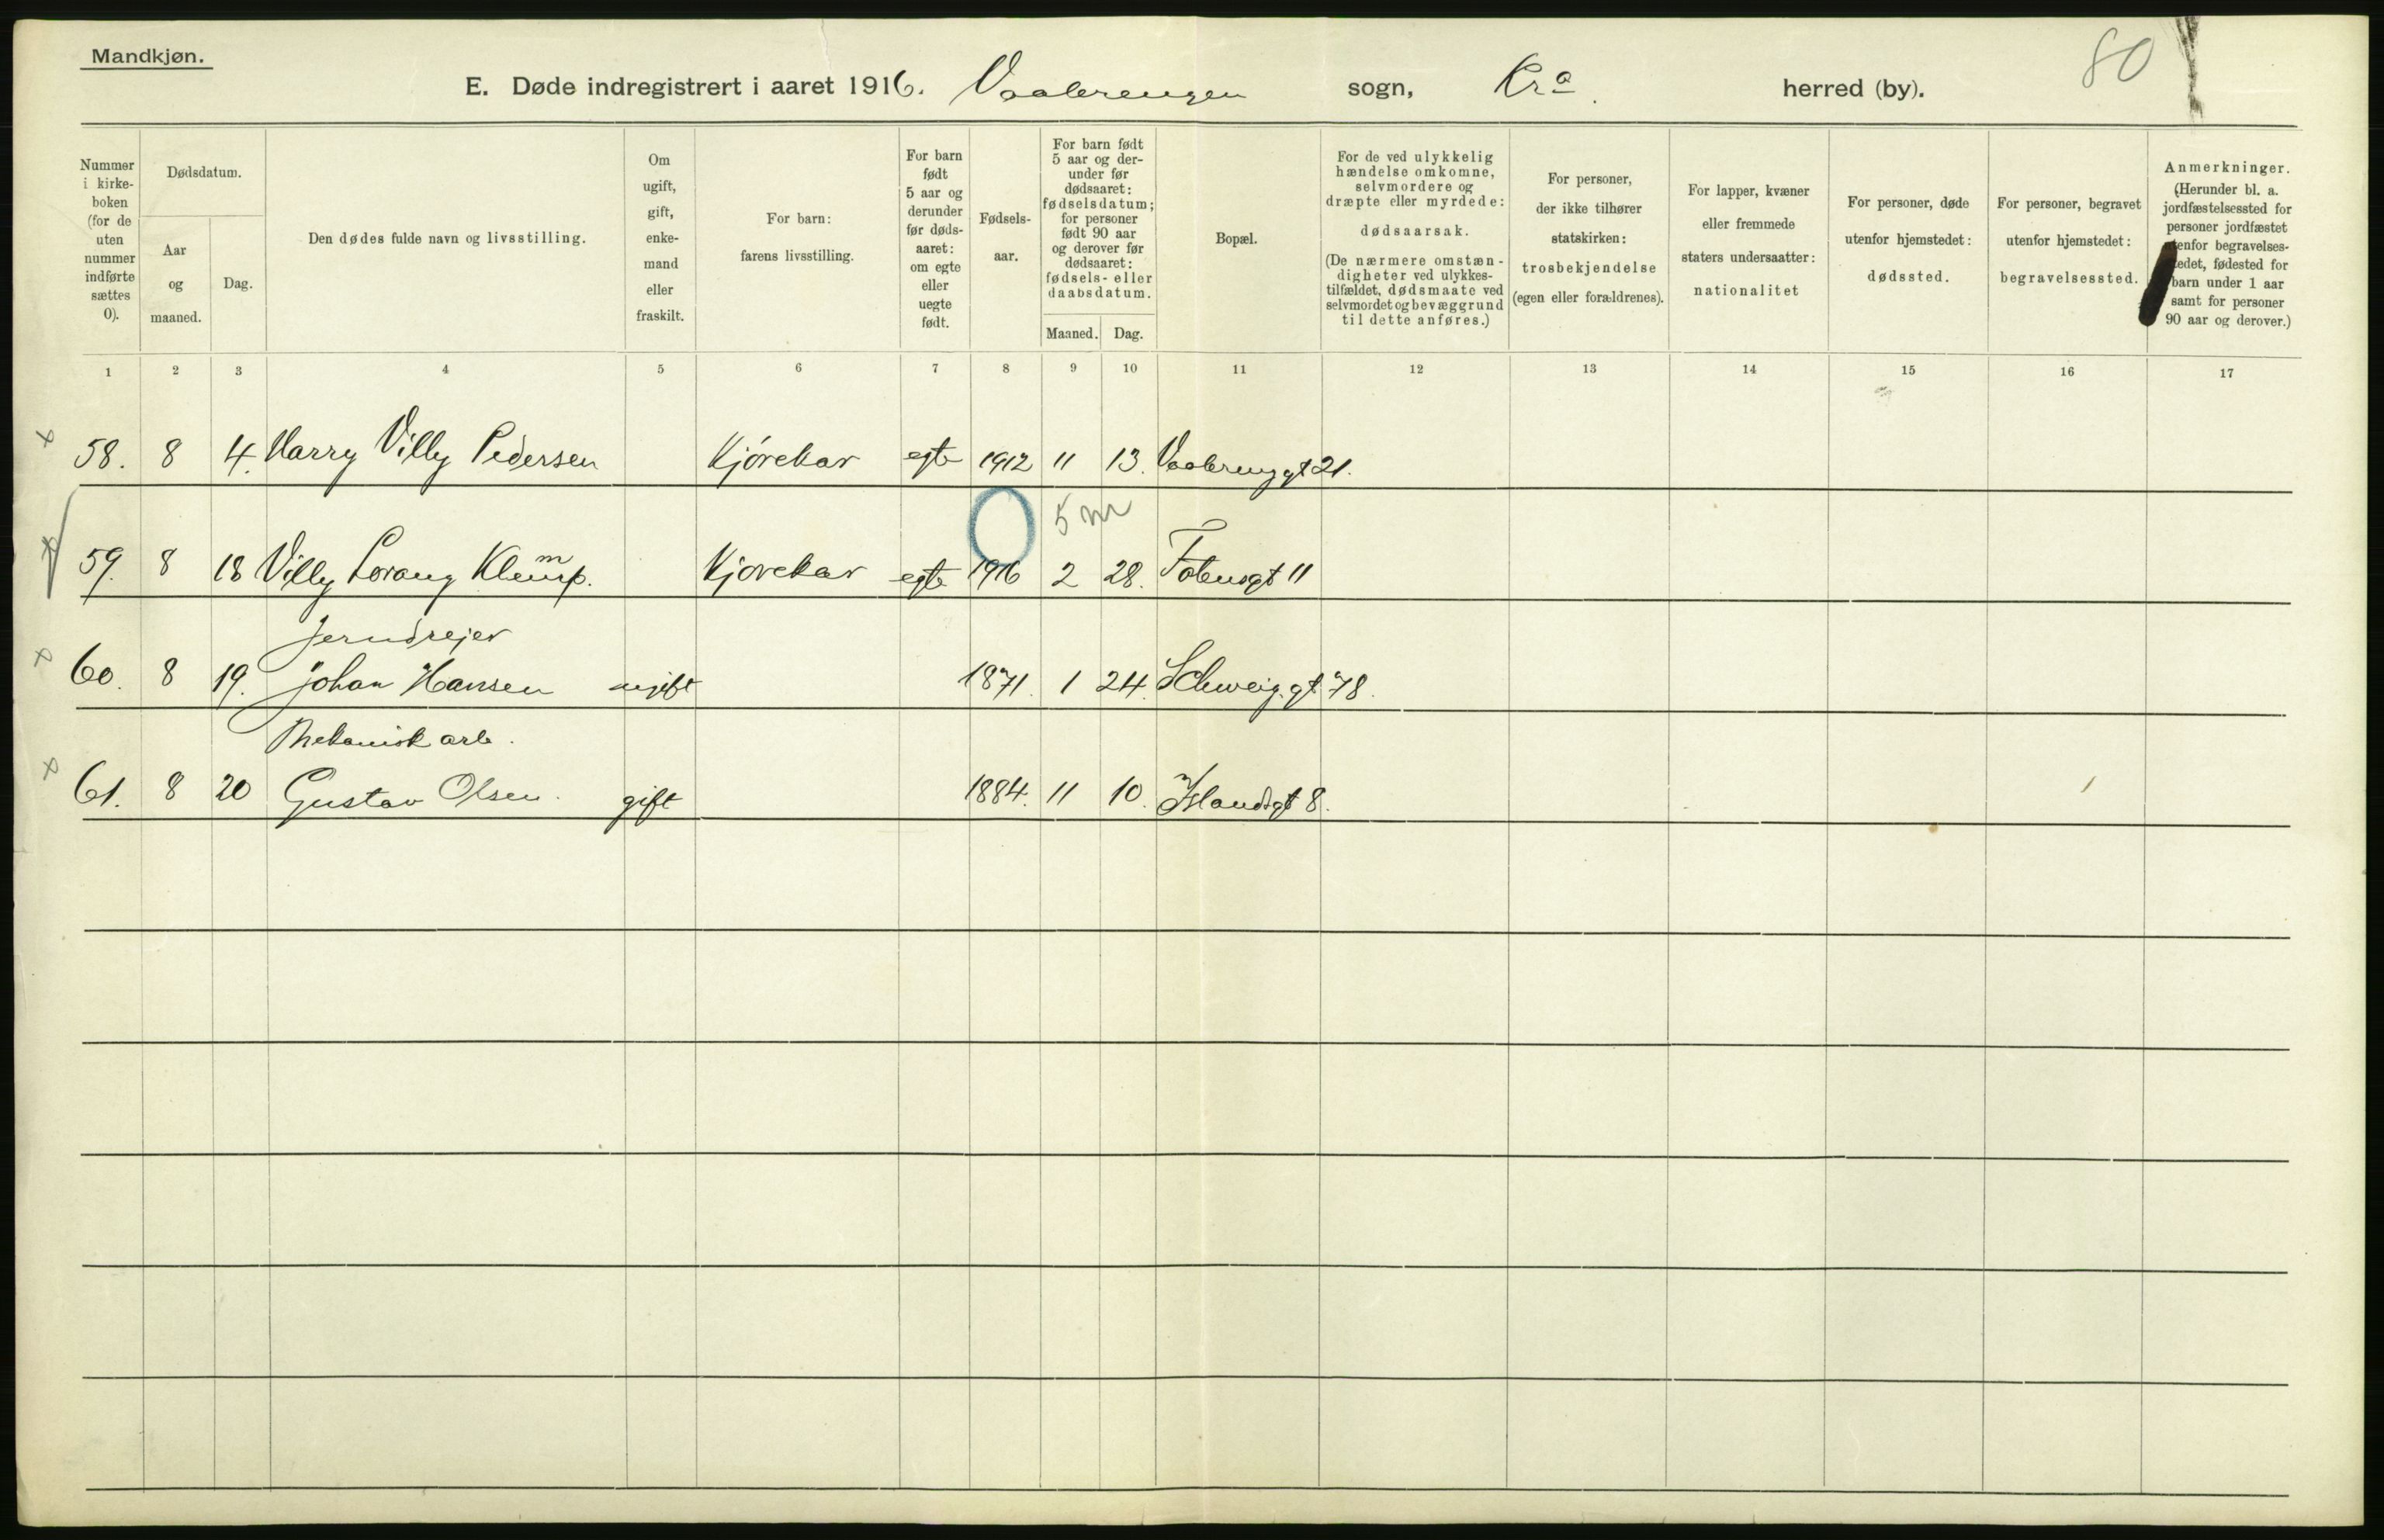 Mandkjøn.
80
E. Døde indregistrert i aaret 1916. Vaalerengen sogn, Kra. herred (by).
Nummer i kirke- boken (for de uten nummer indførte sættes 0).
Dødsdatum.
Aar og maaned.
Dag.
Den dødes fulde navn og livsstilling.
Om ugift, gift, enke- mand eller fraskilt.
For barn: farens livsstilling.
For barn født 5 aar og derunder før døds- aaret: om egte eller uegte født.
Fødsels- aar.
For barn født 5 aar og der- under før dødsaaret: fødselsdatum; for personer født 90 aar og derover før dødsaaret: fødsels- eller daabsdatum.
Maaned.
Dag.
Bopæl.
For de ved ulykkelig hændelse omkomne, selvmordere og dræpte eller myrdede: dødsaarsak. (De nærmere omstæn- digheter ved ulykkes- tilfældet, dødsmaate ved selvmordet og bevæggrund til dette anføres.)
For personer, der ikke tilhører statskirken: trosbekjendelse (egen eller forældrenes).
For lapper, kvæner eller fremmede staters undersaatter: nationalitet
For personer, døde utenfor hjemstedet: dødssted.
For personer, begravet utenfor hjemstedet: begravelsessted.
Anmerkninger. (Herunder bl. a. jordfæstelsessted for personer jordfæstet utenfor begravelses- stedet, fødested for barn under 1 aar samt for personer 90 aar og derover.)
1 2 3 4 5 6 7 8 9 10 11 12 13 14 15 16 17
x 58. 8 4. Harry Villy Pedersen Kjørekar egte 1912 11 13. Vaalerenggt 21.
5 m
59. 8 18 Villy Lorang Klemp. Kjørekar egte 1916 2 28. Totensgt 11
m
Jerndrejer
x 60. 8 19. Johan Hansen ugift 1871. 1 24. Schweig.gt. 78.
Mekanisk arb.
x 61. 8 20 Gustav Olsen. gift 1884. 11 10. Islandsgt 8.